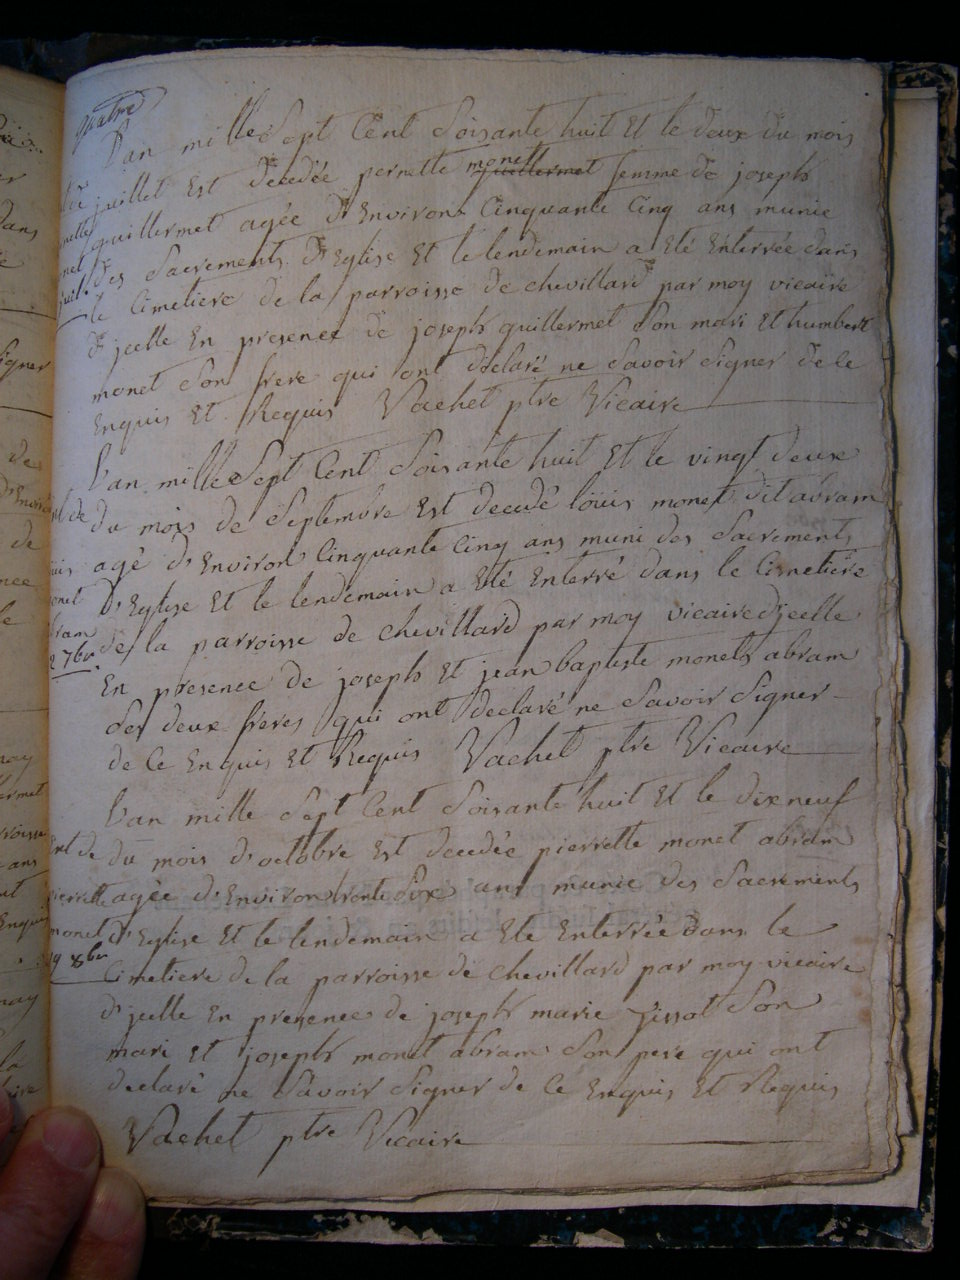 quatre
L'an mille Sept Cent Soisante huit Et le deux du mois
juillet Est decedée pernette monet guillermet femme de joseph
guillermet agée d'Environ Cinquante Cinq ans munie
des Sacrements d'Eglise Et le lendemain a Eté Enterrée dans
le Cimetiere de la parroisse de chevillard par moy vicaire
d'jcelle En presence de joseph guillermet Son mari Et humbert
monet Son frere qui ont déclaré ne Savoir Signer de Ce
Enquis Et Requis Vachet ptre Vicaire
L'an mille Sept Cent Soisante huit Et le vingt deux
du mois de Septembre Est decedé loüis monet dit abram
agé d'Environ Cinquante Cinq ans muni des Sacrements
d'Eglise Et le lendemain a Eté Enterré dans le Cimetière
de la parroisse de chevillard par moy vicaire d'jcelle
En presence de joseph Et jean baptiste monets abram
Ses deux freres qui ont declaré ne Savoir Signer
de Ce Enquis Et Requis Vachet ptre Vicaire
L'an mille Sept Cent Soisante huit Et le dixneuf
du mois d'octobre Est decedée pierrette monet abram
agée d'Environ trente Six ans munie des Sacrements
d'Eglise Et le lendemain a Eté Enterrée dans le
Cimetiere de la parroisse de chevillard par moy vicaire
d'jcelle En presence de joseph marie jissot Son
mari Et joseph monet abram Son pere qui ont
declaré ne Savoir Signer de Ce Enquis Et Requis
Vachet ptre Vicaire
juil.
2 7br
monet
19 8br